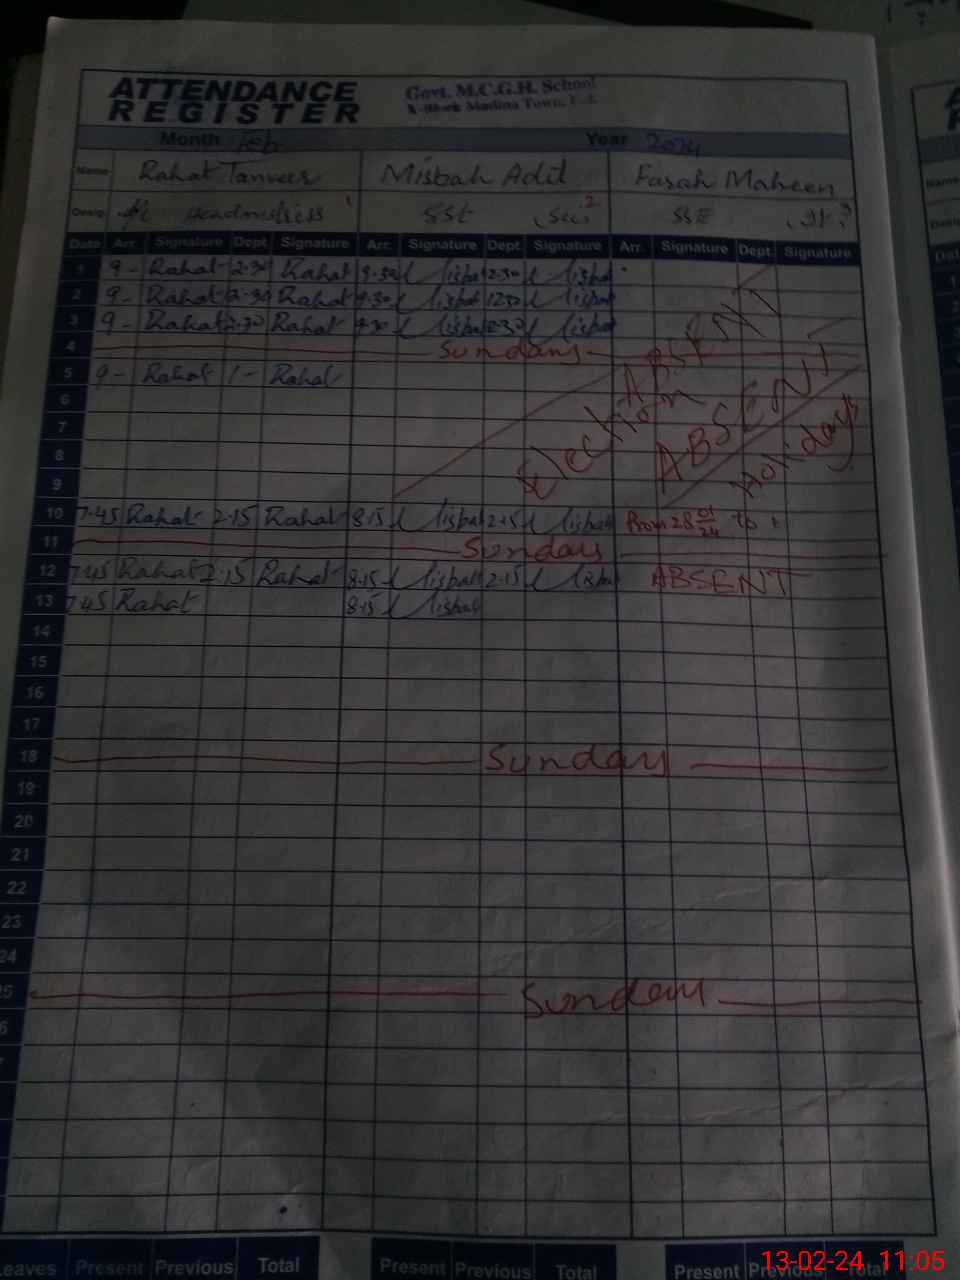 ATTENDANCE REGISTER
Govt. M.C.G.H. School
X-Block Madina Town,
Month Feb Year 2024
Name Rahat Tanveer Misbah Adil Farah Maheen
Desig. Headmistress 1 SSE Sci. 2 SSE 3
Date Arr. Signature Dept. Signature Arr. Signature Dept. Signature Arr. Signature Dept. Signature
1 9- Rahat 2-30 Rahat 9-30 Misbah 12-30 Misbah
2 9- Rahat 12-30 Rahat 9-30 Misbah 1230 Misbah
3 9- Rahat 2-30 Rahat 9-30 Misbah 12-30 Misbah
ABSENT
4 Sunday
5 9- Rahat 1- Rahat
6
ABSENT
7
Election Holidays
8
9
10 7-45 Rahat 2-15 Rahat 8-15 Misbah 2-15 Misbah From 28 01/24 to
11 Sunday
12 7-45 Rahat 2-15 Rahat 8-15 Misbah 2-15 Misbah ABSENT
13 7-45 Rahat 8-15 Misbah
14
15
16
17
18 Sunday
19
20
21
22
23
24
25 Sunday
6
Leaves Present Previous Total Present Previous Total Present Previous Total
13-02-24 11:05